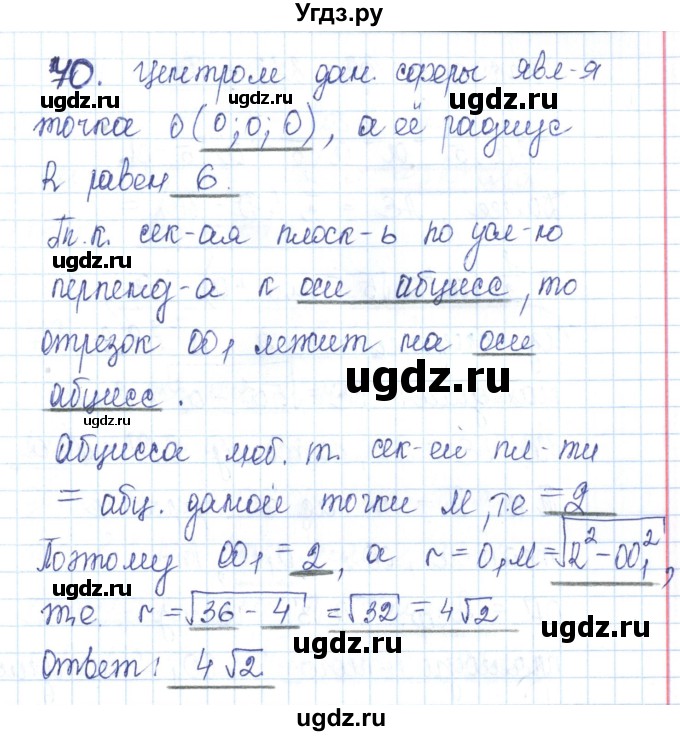 Угдз.ру
70. Центром дан. сферы явл-я
ugdz.ru ugdz.ru ugdz.ru
точка O (0; 0; 0), а её радиус
R равен 6.
Т.к. сек-ая плоск-ь по усл-ю
ugdz.ru
перпенд-а к оси абцисс, то
отрезок OO₁ лежит на оси
ugdz.ru
абцисс.
ugdz.ru
Абцисса люб. т. сек-ей пл-ти
= абц. данной точки M, т.е = 2
Поэтому OO₁ = 2, а r = O₁M = √R² - OO₁²,
ugdz.ru
т.е. r = √36 - 4 = √32 = 4√2
Ответ: 4√2
ugdz.ru ugdz.ru
ugdz.ru